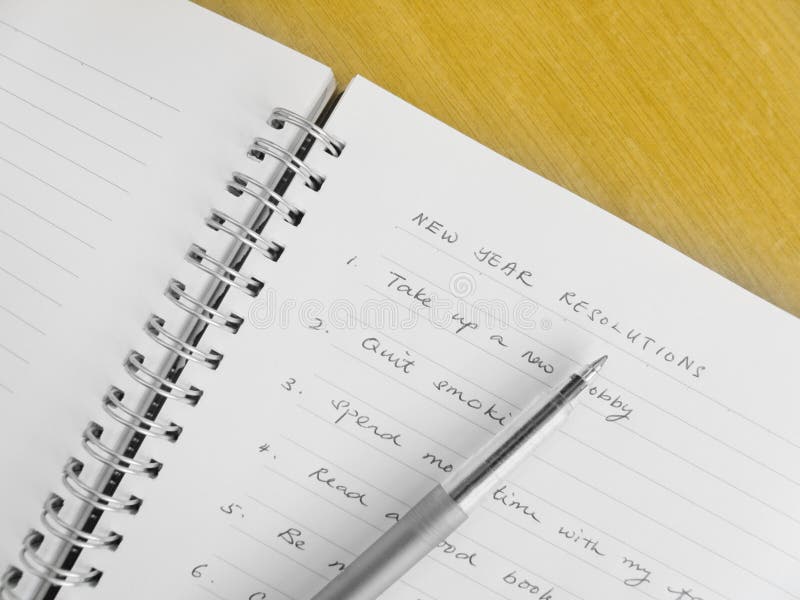 NEW YEAR RESOLUTIONS
1. Take up a new hobby
2. Quit smoki
3. Spend mo time with my
4. Read a ood book
5. Be
6.
dreamstime